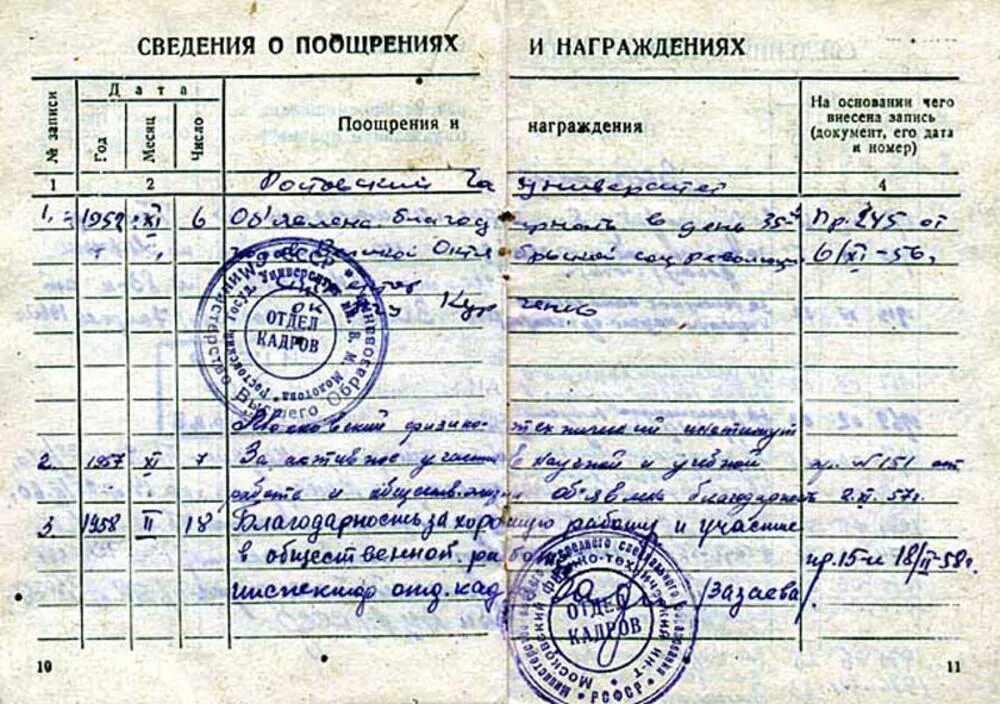 СВЕДЕНИЯ О ПООЩРЕНИЯХ И НАГРАЖДЕНИЯХ
№ записи
Дата
Год
Месяц
Число
Поощрения и награждения
На основании чего
внесена запись
(документ, его дата
и номер)
1 2 4
Ростовский университет
1. 1952 XI 6 Объявлена благодарность в день 35 Пр. 245 от
Великой Октябрьской соц. революции 6/XI-56
ОТДЕЛ
КАДРОВ
Министерство Высшего Образования
Ростовский госуд. Университет им. В. М. Молотова
Московский физико-технический институт
2. 1957 XI 7 За активное участие в научной и учебной пр. №151 от
работе и обществ. жизни объявлена благодарность 2.XI.57г.
3 1958 II 18 Благодарность за хорошую работу и участие
в общественной работе пр. 15-и 18/II-58г.
инспектор отд. кад /Зазаева/
ОТДЕЛ
КАДРОВ
Московский физико-технический ин-т
РСФСР
10 11